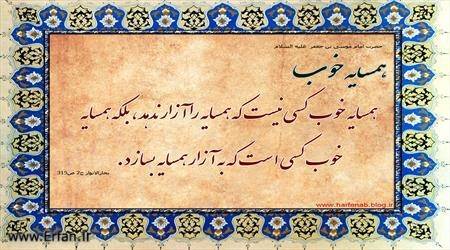 حضرت امام موسی بن جعفر علیه السلام
همسایه خوب
همسایه خوب کسی نیست که همسایه را آزار ندهد، بلکه همسایه
خوب کسی است که به آزار همسایه بسازد.
بحارالانوار ج7 ص315
www.harfenab.blog.ir
www.Erfan.ir